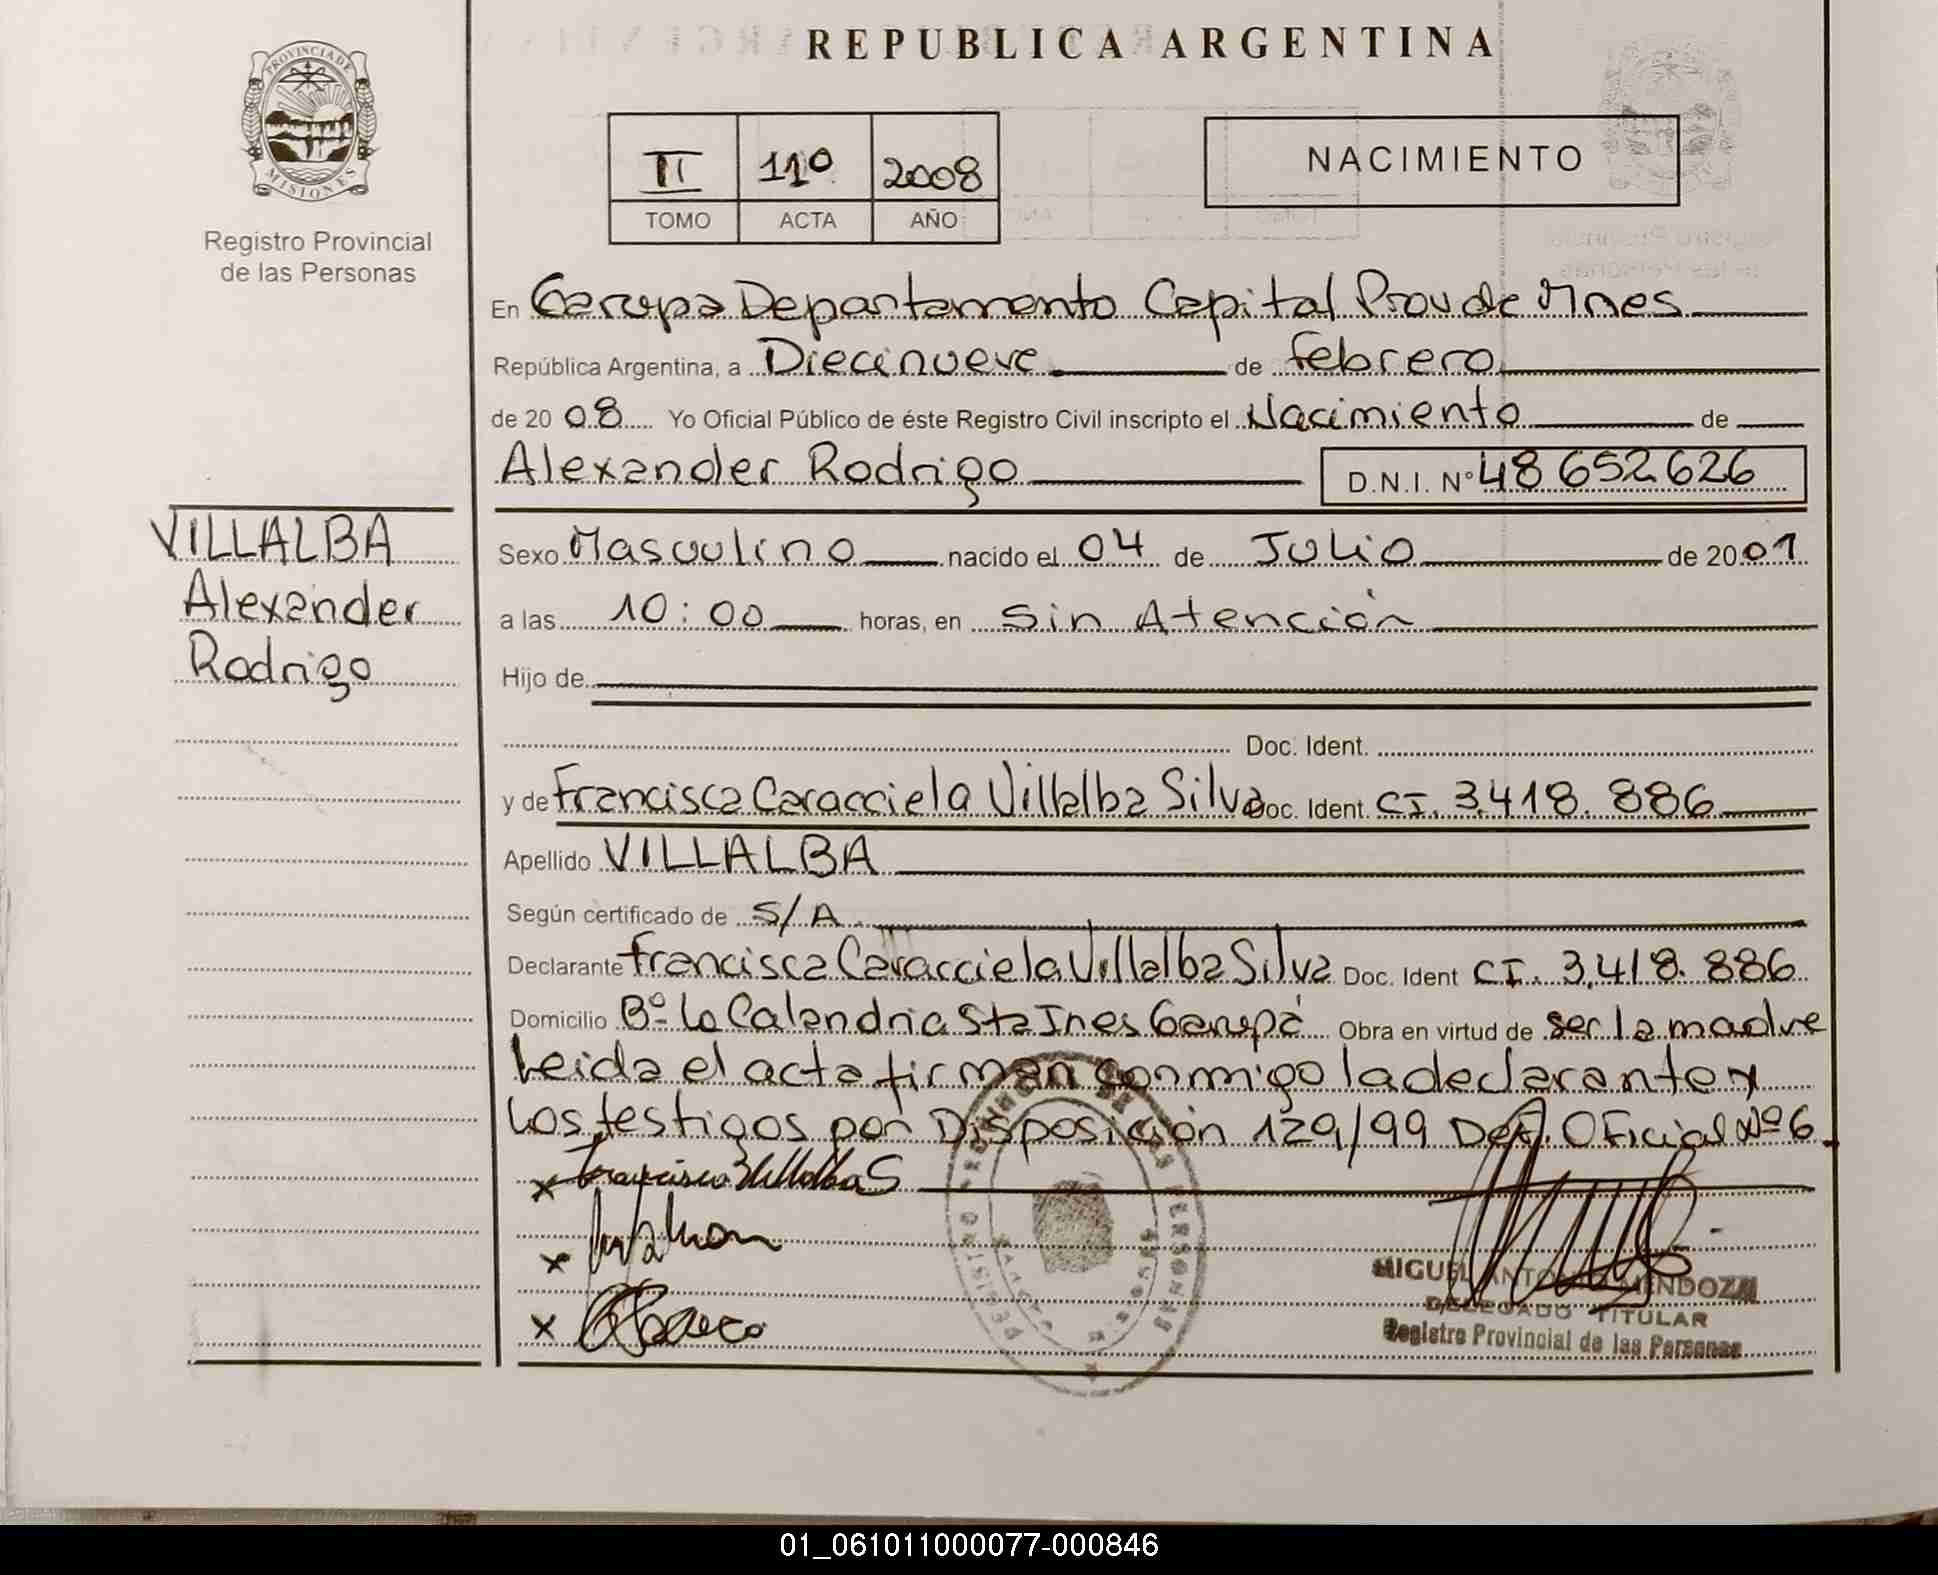 REPUBLICA ARGENTINA
PROVINCIA DE
MISIONES
Registro Provincial
de las Personas
II 110 2008
TOMO ACTA AÑO
NACIMIENTO
En Garupa Departamento Capital Prov de Mnes
República Argentina, a Diecinueve de febrero
de 2008 Yo Oficial Público de éste Registro Civil inscripto el Nacimiento de
Alexander Rodrigo D.N.I. Nº 48652626
VILLALBA
Alexander
Rodrigo
Sexo Masculino nacido el 04 de Julio de 2001
a las 10:00 horas, en Sin Atención
Hijo de
Doc. Ident.
y de Francisca Caracciela Villalba Silva Doc. Ident. CI. 3.418.886
Apellido VILLALBA
Según certificado de S/A
Declarante Francisca Caracciela Villalba Silva Doc. Ident CI. 3.418.886
Domicilio Bº La Calandria Sta Ines Garupá Obra en virtud de ser la madre
Leida el acta firman conmigo la declarante y
Los testigos por Disposición 129/99 Def. Oficial Nº 6
x Francisca Villalba S
x
x
MIGUEL ANTONIO MENDOZA
DELEGADO TITULAR
Registro Provincial de las Personas
01_061011000077-000846